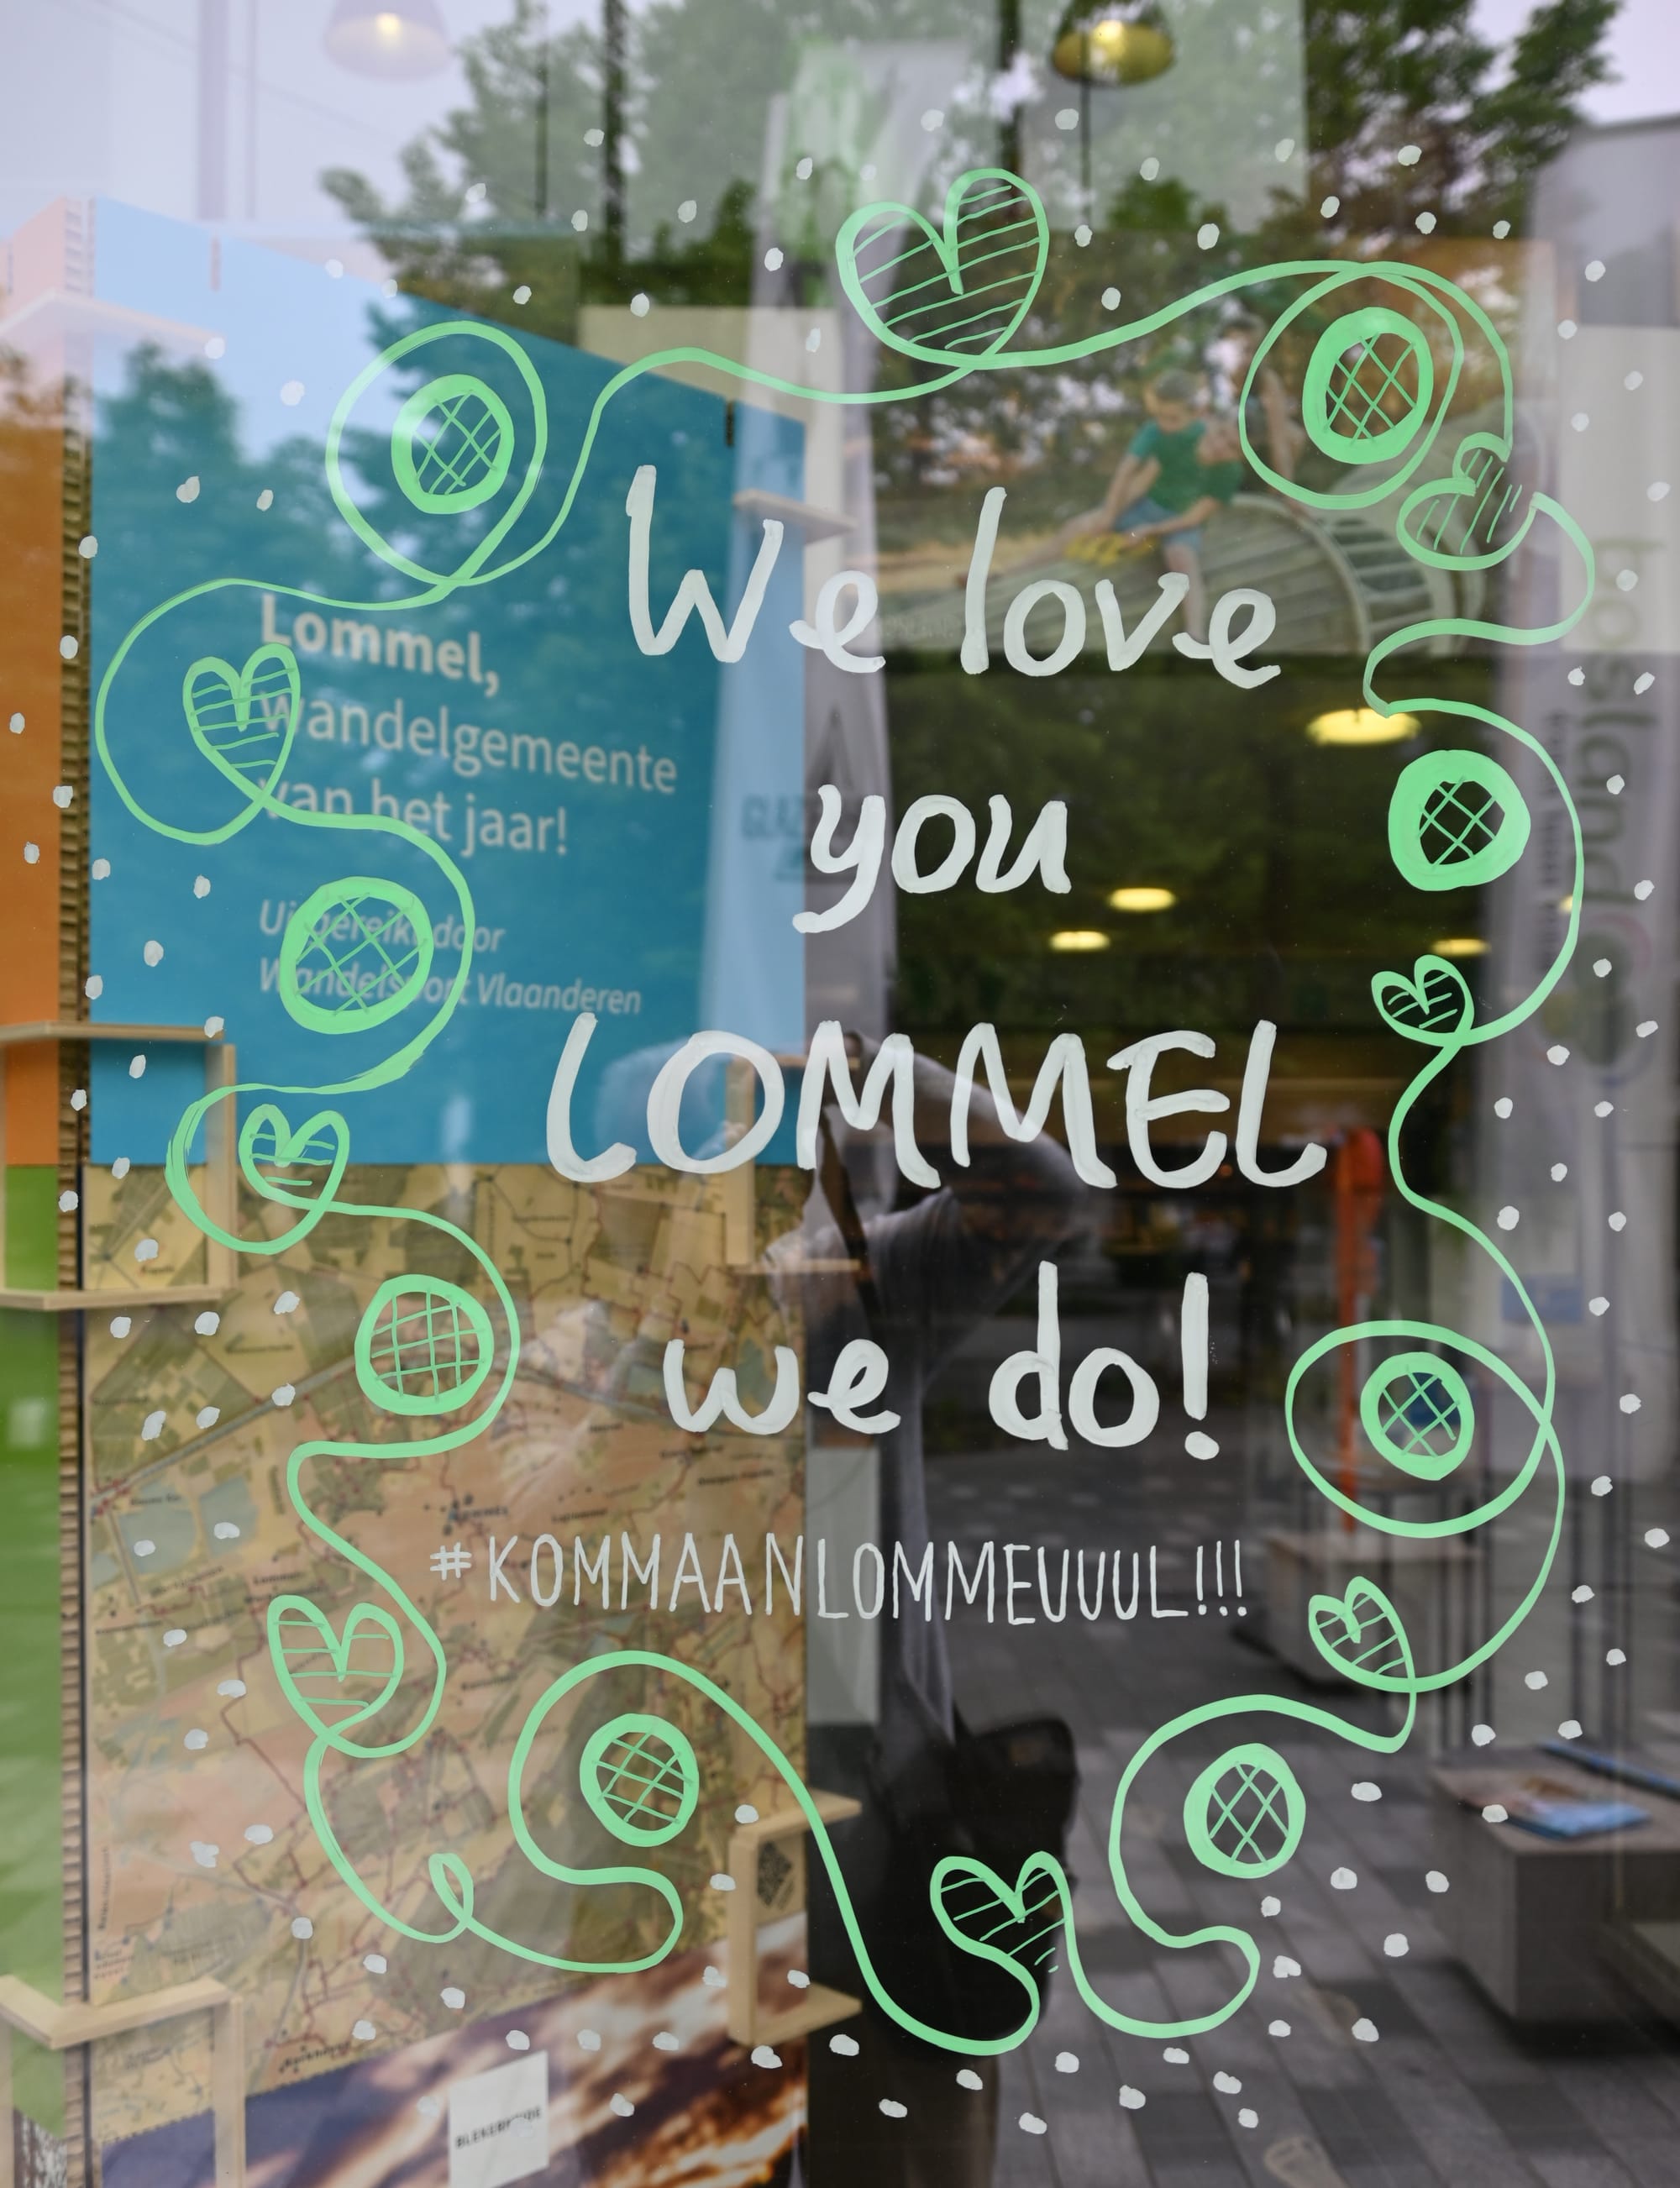 We love
you
LOMMEL
we do!
#KOMMAANLOMMEUUUL!!!
Lommel,
wandelgemeente
van het jaar!
Uitgereikt door
Wandelsport Vlaanderen